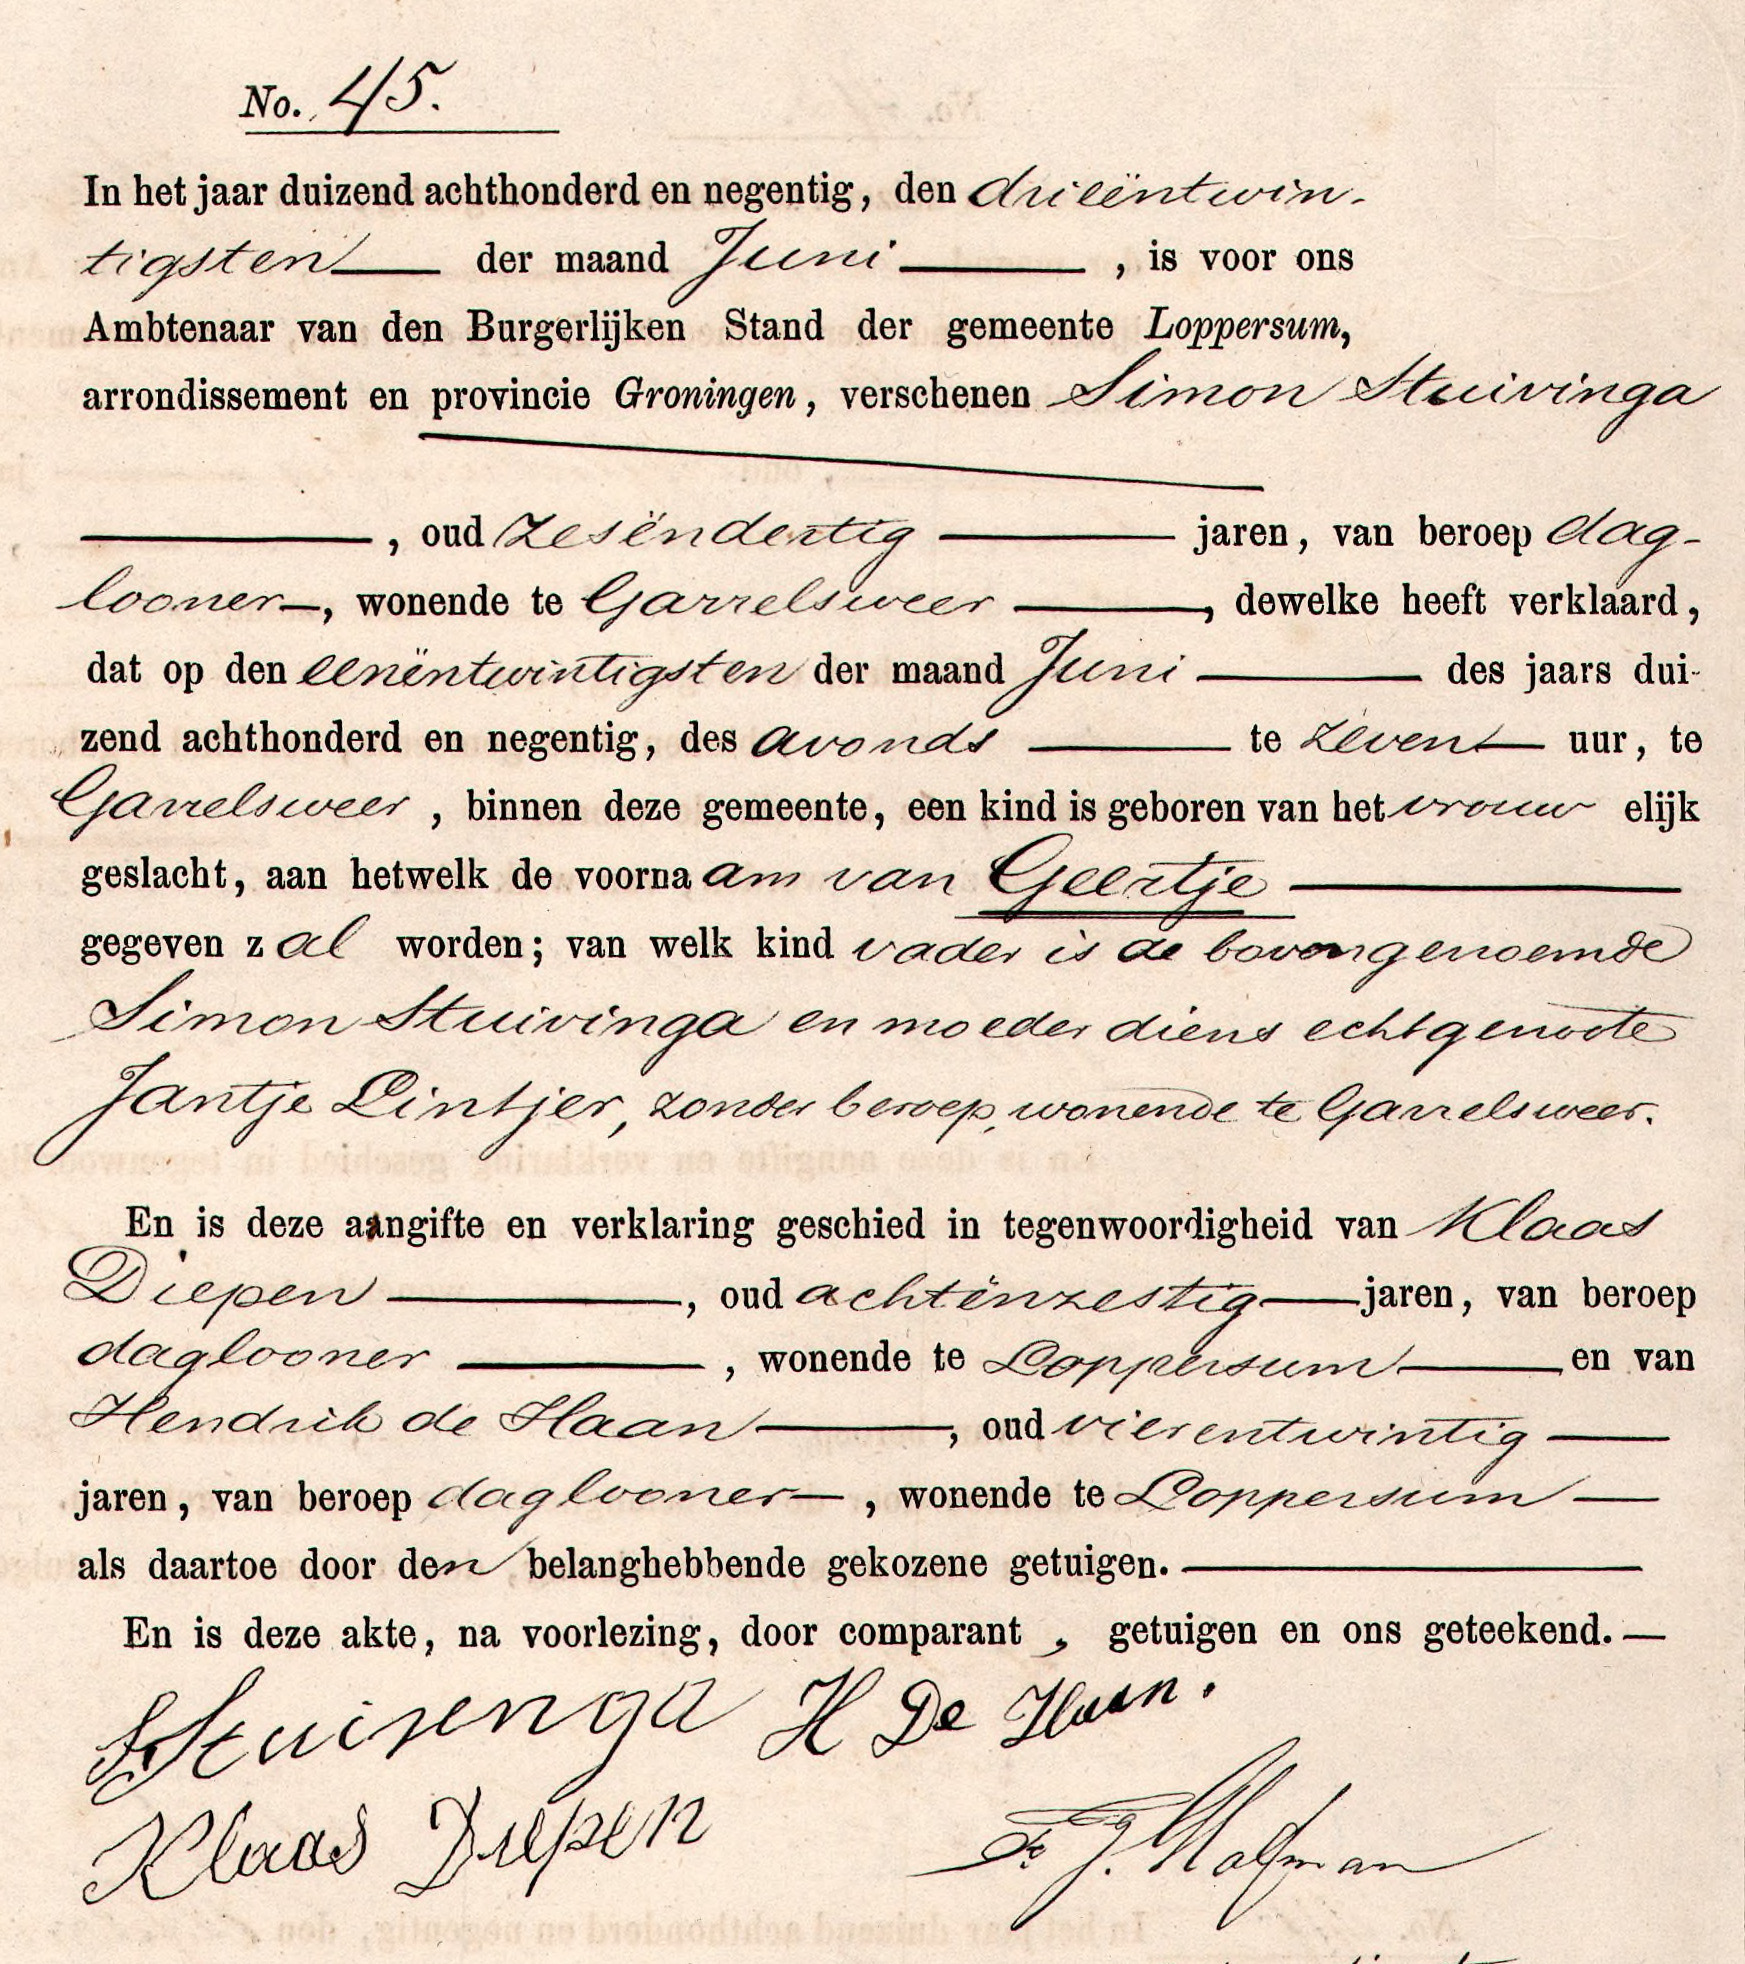 No. 45.
In het jaar duizend achthonderd en negentig, den drieëntwin-
tigsten der maand Juni, is voor ons
Ambtenaar van den Burgerlijken Stand der gemeente Loppersum,
arrondissement en provincie Groningen, verschenen Simon Stuivinga
, oud zesëndertig jaren, van beroep dag-
looner, wonende te Garrelsweer, dewelke heeft verklaard,
dat op den eenëntwintigsten der maand Juni des jaars dui-
zend achthonderd en negentig, des avonds te zeven uur, te
Garrelsweer, binnen deze gemeente, een kind is geboren van het vrouwelijk
geslacht, aan hetwelk de voornaam van Geertje
gegeven zal worden; van welk kind vader is de bovengenoemde
Simon Stuivinga en moeder diens echtgenoote
Jantje Lintjer, zonder beroep, wonende te Garrelsweer.
En is deze aangifte en verklaring geschied in tegenwoordigheid van Klaas
Diepen, oud achtënzestig jaren, van beroep
daglooner, wonende te Loppersum en van
Hendrik de Haan, oud vierentwintig
jaren, van beroep daglooner, wonende te Loppersum
als daartoe door den belanghebbende gekozene getuigen.
En is deze akte, na voorlezing, door comparant, getuigen en ons geteekend.
S Stuivenga H De Haan.
Klaas Diepen